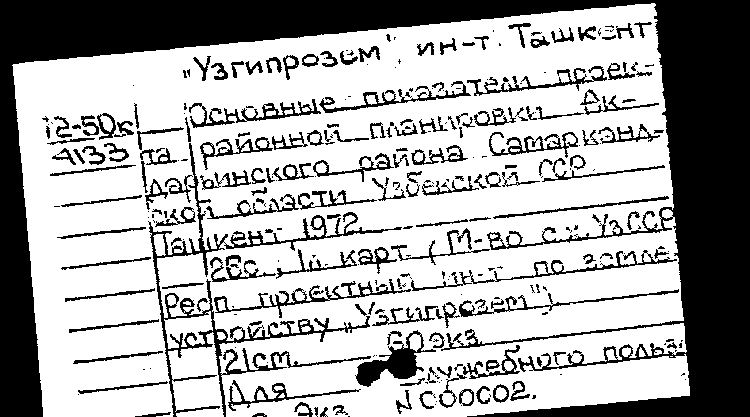 „Узгипрозем", ин-т. Ташкент
12-50к
4133
Основные показатели проек-
та районной планировки Ак-
дарьинского района Самарканд-
ской области Узбекской ССР
Ташкент 1972.
26с., 1л. карт. (М-во с.х. УзССР
Респ. проектный ин-т по земле-
устройству „Узгипрозем").
21см. 60экз
Для служебного польз
Экз. N С00002.